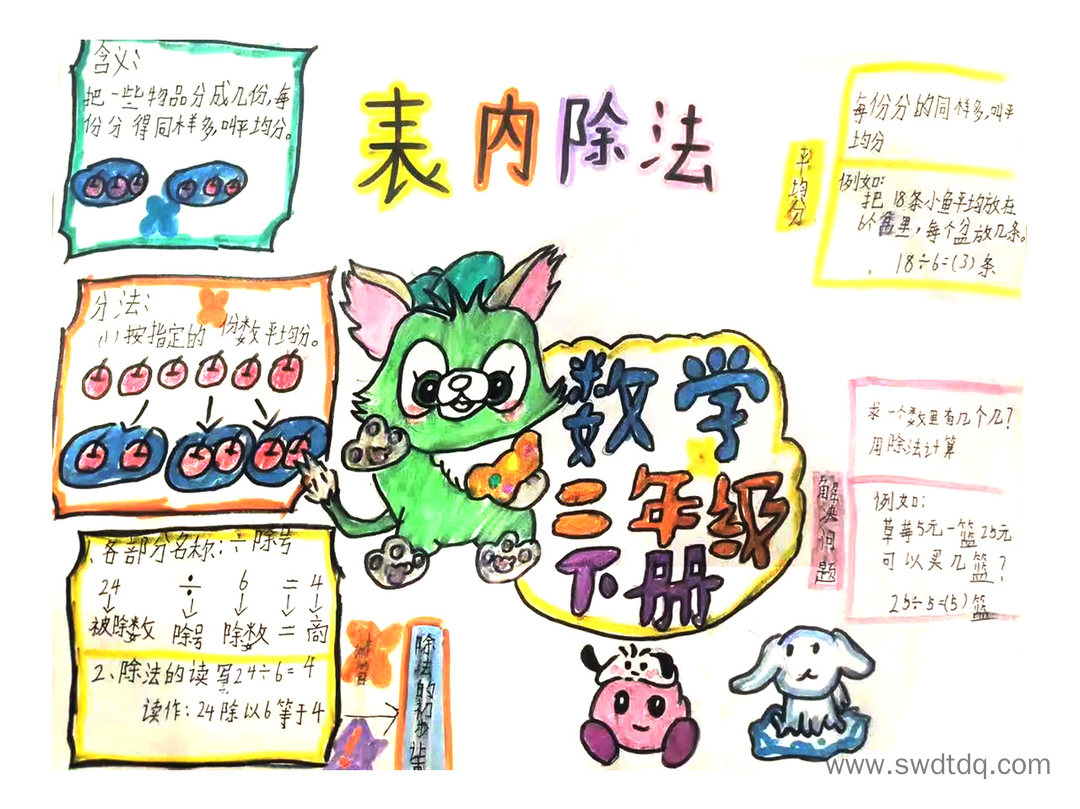 表内除法
含义:
把一些物品分成几份,每
份分得同样多,叫平均分。
分法:
(1)按指定的份数平均分。
1、各部分名称:÷除号
24 ÷ 6 = 4
被除数 除号 除数 = 商
2、除法的读写24÷6=4
读作:24除以6等于4
除法的初步
数学
二年级
下册
平均分
每份分的同样多,叫平
均分
例如:
把18条小鱼平均放在
6个盆里,每个盆放几条。
18÷6=(3)条
解决问题
求一个数里有几个几?
用除法计算
例如:
草莓5元一篮25元
可以买几篮?
25÷5=(5)篮
www.swdtdq.com